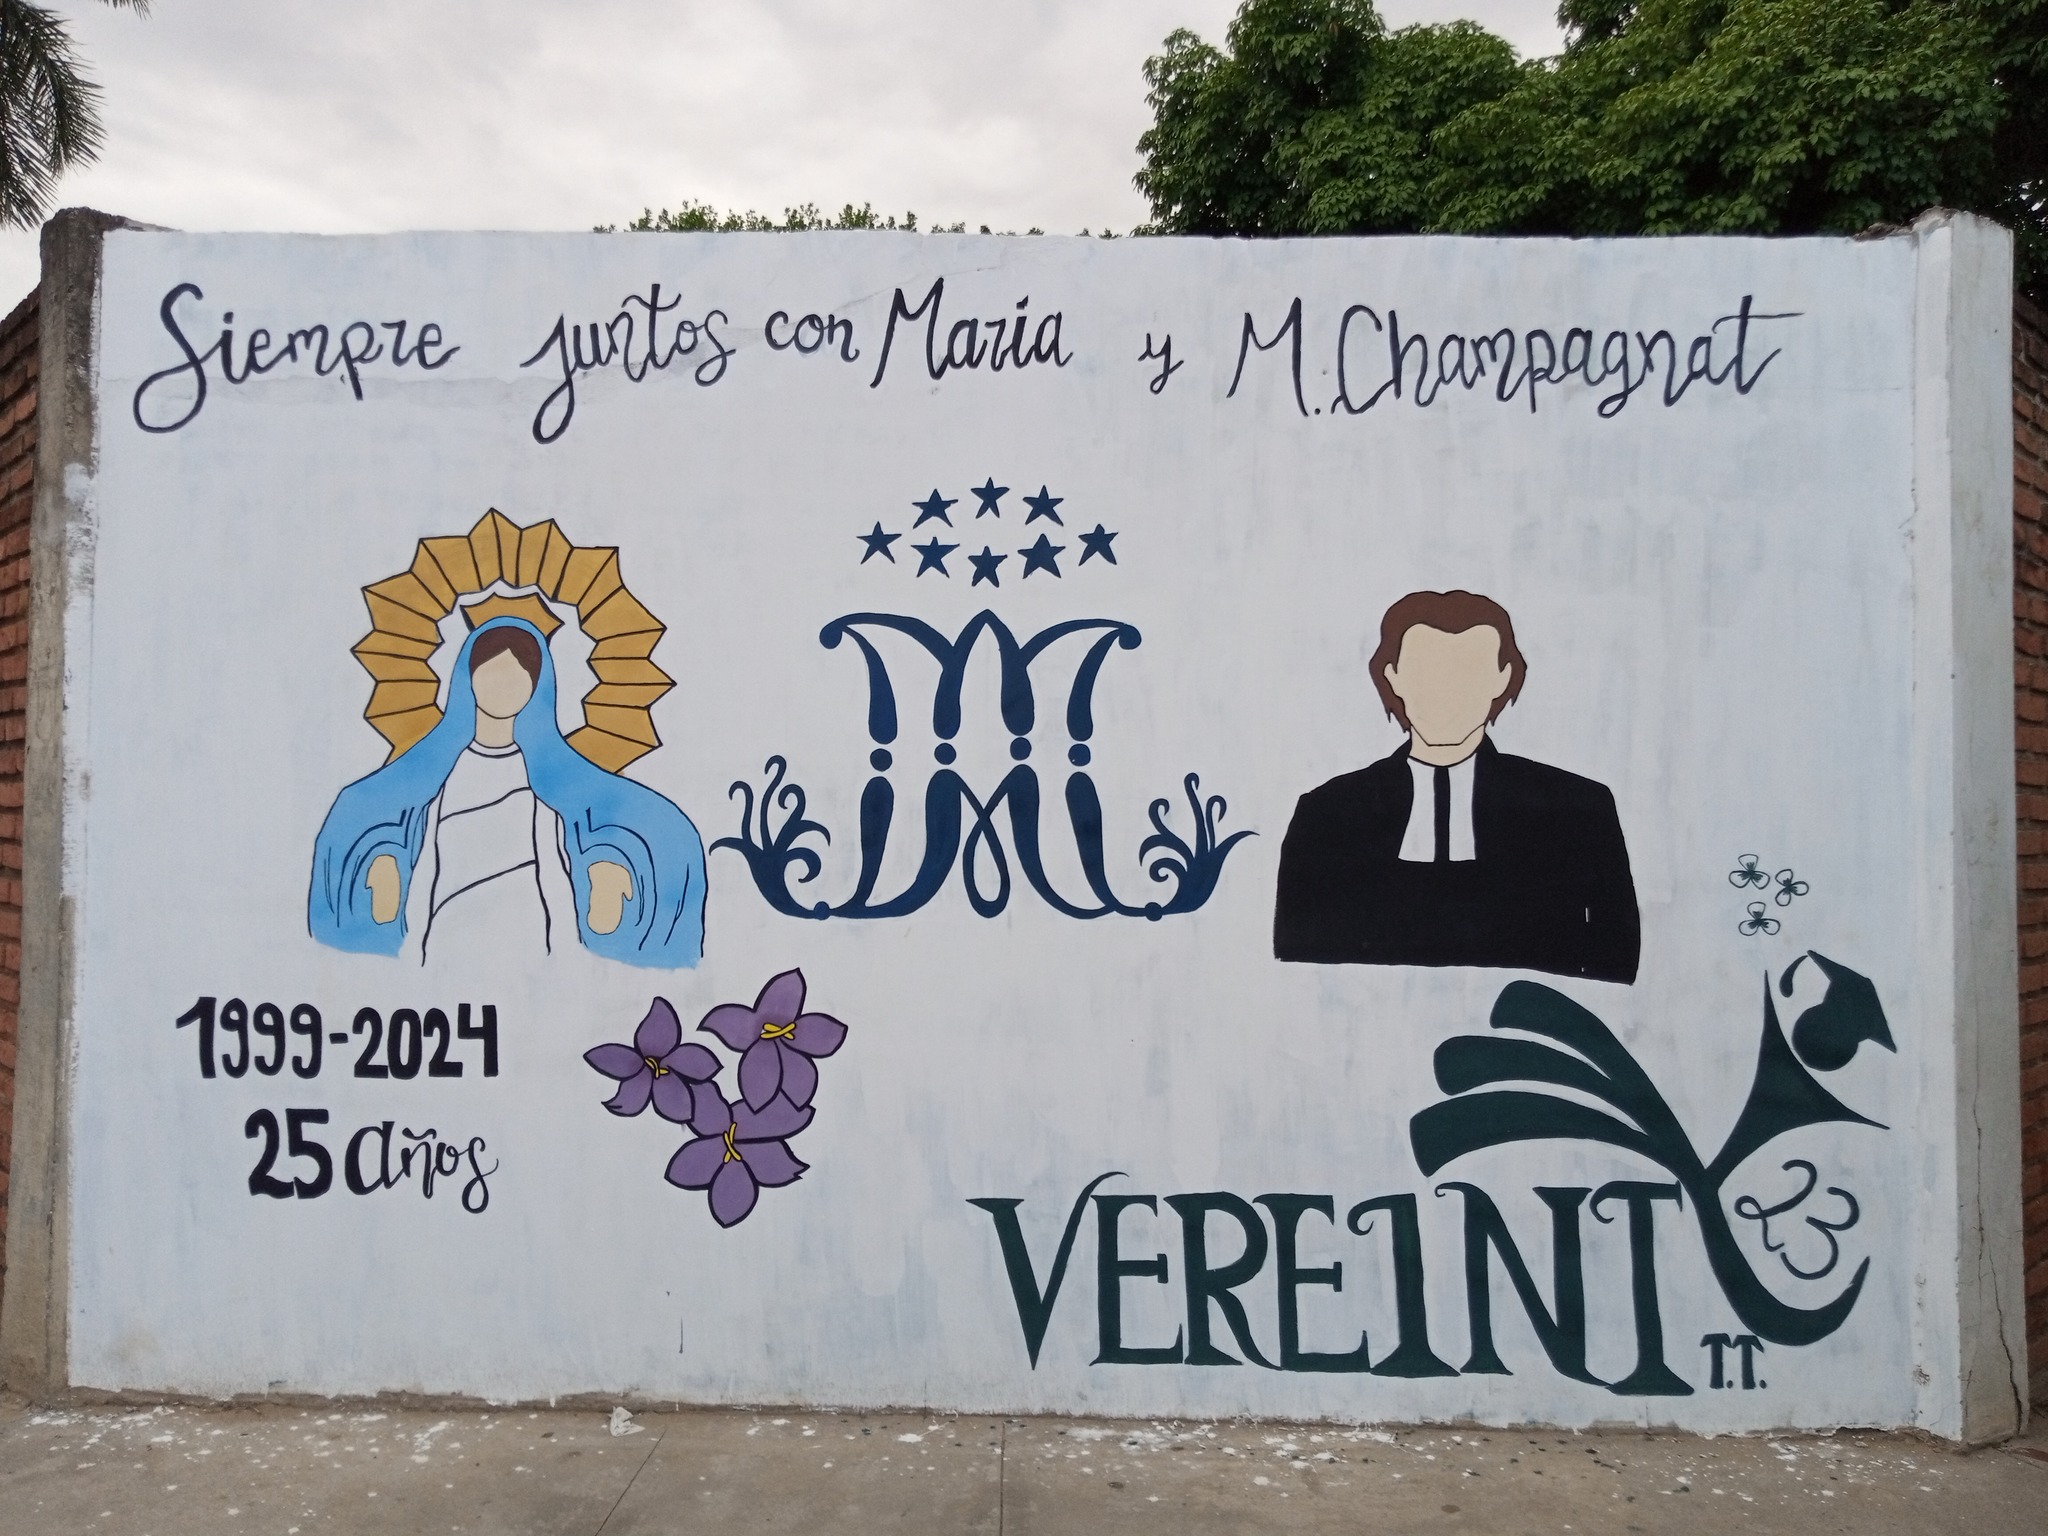 Siempre juntos con Maria y M. Champagnat
1999-2024
25 años
VEREINT
23
T.T.